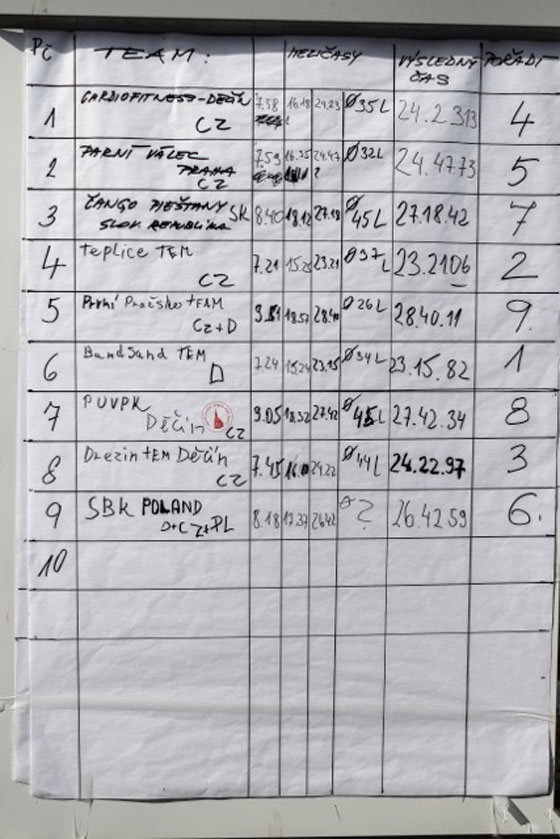 Pč TEAM: MEZIČASY VÝSLEDNÝ ČAS POŘADÍ
1 CARDIOFITNESS-DEČÍN 7.58 16.18 24.23 Ø35L 24.2.313 4
CZ
2 PARNÍ VÁLEC 7.59 16.35 24.47 Ø32L 24.47.73 5
PRAHA
CZ
3 ČANGO PIEŠŤANY SK 8.40 18.12 27.18 Ø45L 27.18.42 7
SLOV. REPUBLIKA
4 Teplice TEM 7.21 23.21 Ø37L 23.2106 2
CZ
5 První TEAM 18.57 28.40 Ø26L 28.40.11 9.
CZ+D
6 BandSand TEM 7.24 15.24 23.15 Ø34L 23.15.82 1
D
7 PUVPK 9.05 18.32 27.42 Ø45L 27.42.34 8
Děčín CZ
8 Drezin tEM Děčín 7.45 24.22 Ø44L 24.22.97 3
CZ
9 SBK POLAND 8.18 17.37 26.42 Ø? 26.42.59 6.
D+CZ+PL
10